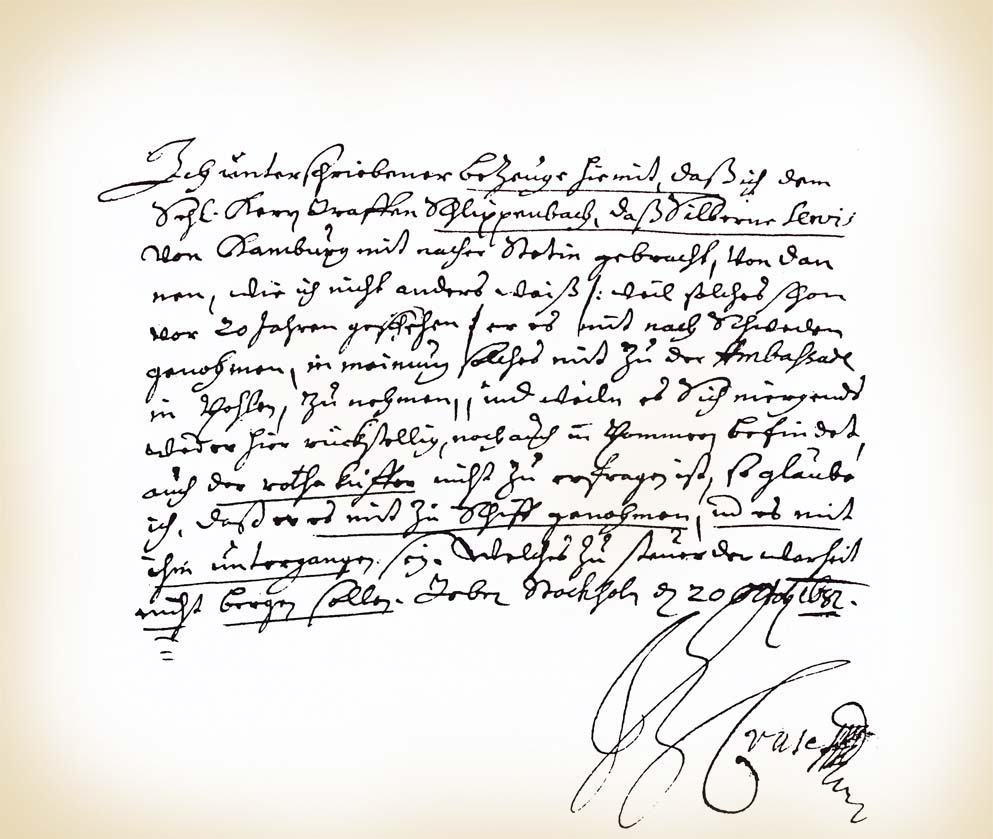 Ich unterschriebener bezeuge hiemit, daß ich dem
Sehl. Herrn Graffen Schlippenbach, daß Silberne Servis
von Hamburg mit nacher Stetin gebracht, von dan
nen, wie ich nicht anders weiß /: weil solches schon
vor 20 Jahren geschehen / er es mit nach Schweden
genohmen, in meinung solches mit zu der Ambassade
in Pohlen, zu nehmen, und weiln es Sich niergends
weder hier rückstellig, noch auch in Pommern befindet,
auch der nicht zu erfragen ist, so glaube
ich, daß er es mit zu Schiff genohmen, und es mit
ihm untergangen sey. Welches zu steuer der warheit
nicht bergen sollen. Geben Stockholm den 20 1682.